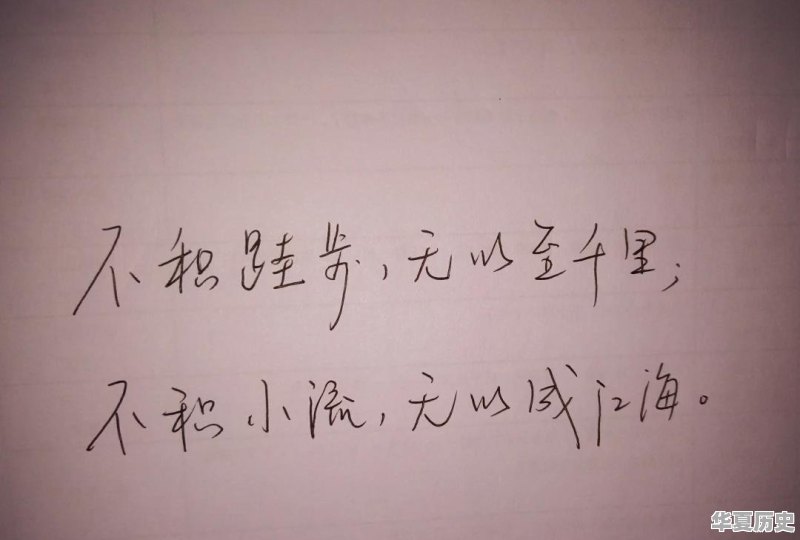 不积跬步，无以至千里；
不积小流，无以成江海。
华夏历史